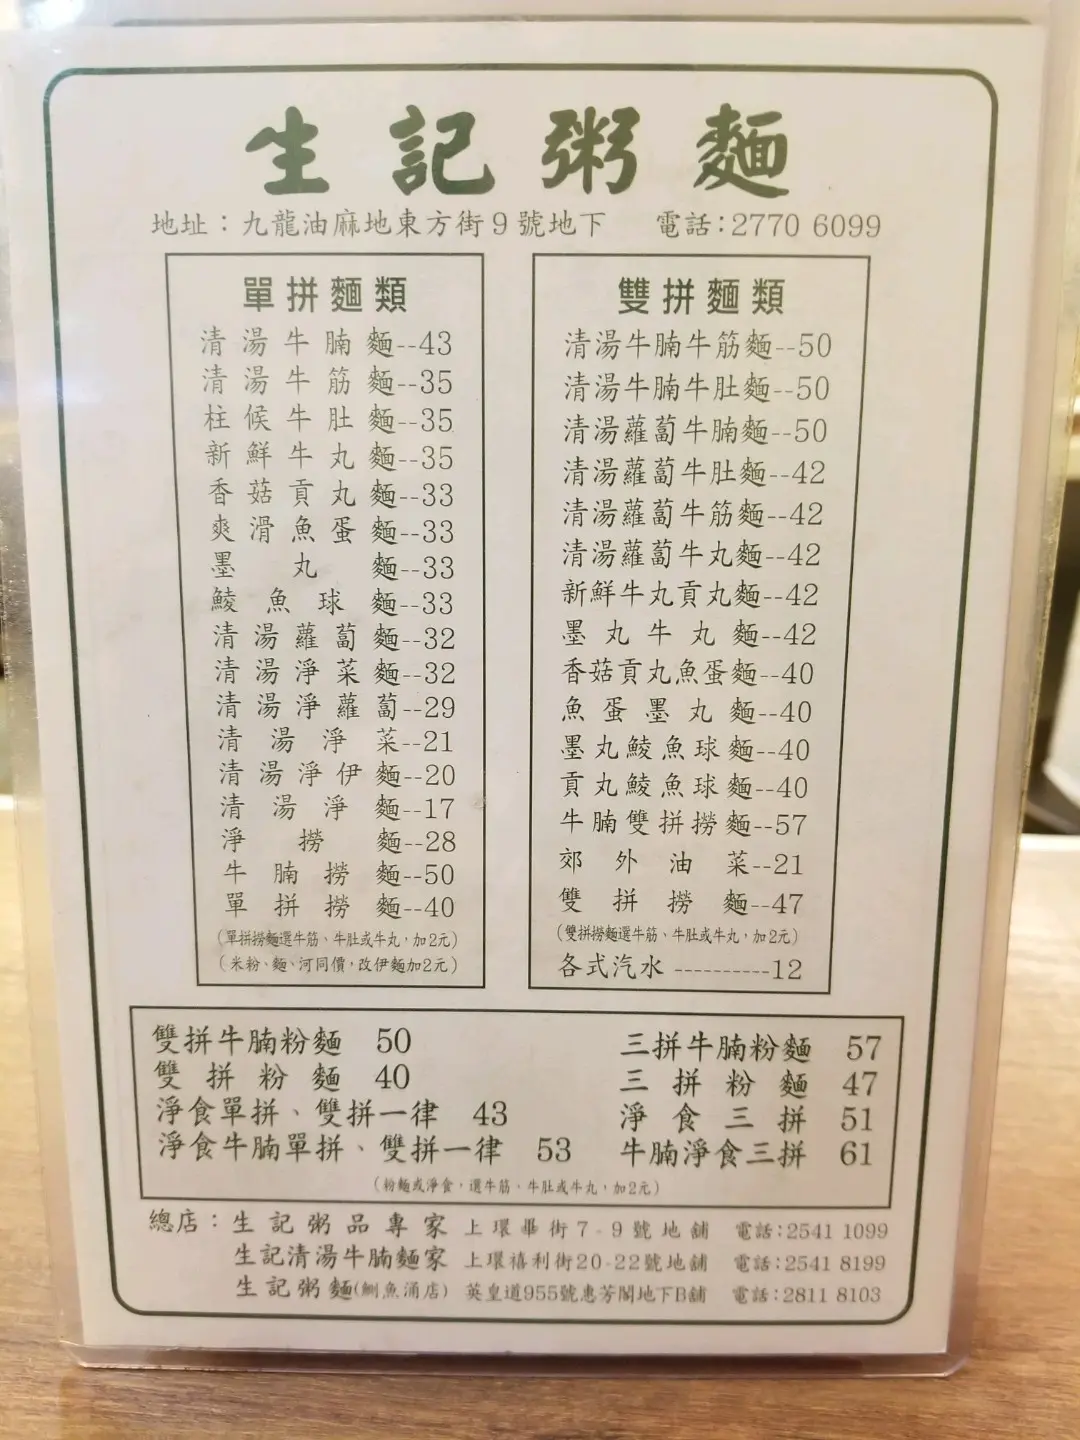 生記粥麵
地址：九龍油麻地東方街9號地下　電話：2770 6099
單拼麵類
清湯牛腩麵--43
清湯牛筋麵--35
柱候牛肚麵--35
新鮮牛丸麵--35
香菇貢丸麵--33
爽滑魚蛋麵--33
墨丸麵--33
鯪魚球麵--33
清湯蘿蔔麵--32
清湯淨菜麵--32
清湯淨蘿蔔--29
清湯淨菜--21
清湯淨伊麵--20
清湯淨麵--17
淨撈麵--28
牛腩撈麵--50
單拼撈麵--40
（單拼撈麵選牛筋、牛肚或牛丸，加2元）
（米粉、麵、河同價，改伊麵加2元）
雙拼麵類
清湯牛腩牛筋麵--50
清湯牛腩牛肚麵--50
清湯蘿蔔牛腩麵--50
清湯蘿蔔牛肚麵--42
清湯蘿蔔牛筋麵--42
清湯蘿蔔牛丸麵--42
新鮮牛丸貢丸麵--42
墨丸牛丸麵--42
香菇貢丸魚蛋麵--40
魚蛋墨丸麵--40
墨丸鯪魚球麵--40
貢丸鯪魚球麵--40
牛腩雙拼撈麵--57
郊外油菜--21
雙拼撈麵--47
（雙拼撈麵選牛筋、牛肚或牛丸，加2元）
各式汽水 ----------12
雙拼牛腩粉麵 50
雙拼粉麵 40
淨食單拼、雙拼一律 43
淨食牛腩單拼、雙拼一律 53
三拼牛腩粉麵 57
三拼粉麵 47
淨食三拼 51
牛腩淨食三拼 61
（粉麵或淨食，選牛筋、牛肚或牛丸，加2元）
總店：生記粥品專家 上環畢街7-9號地舖 電話：2541 1099
生記清湯牛腩麵家 上環禧利街20-22號地舖 電話：2541 8199
生記粥麵（鰂魚涌店） 英皇道955號惠芳閣地下B舖 電話：2811 8103